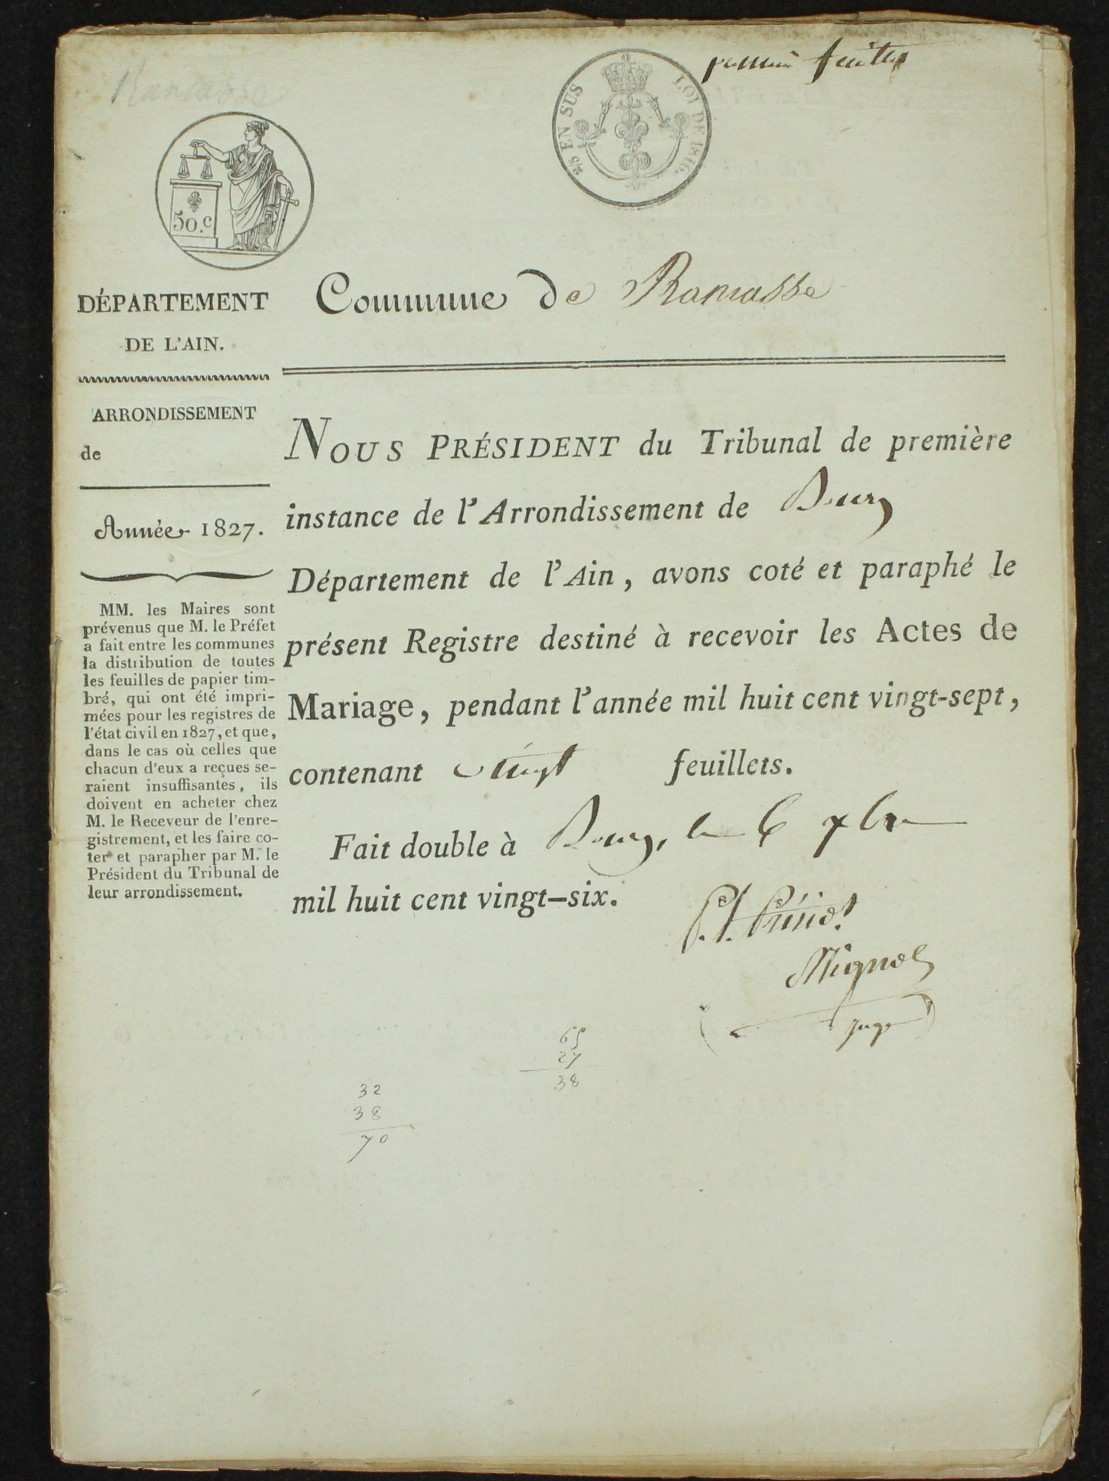 Ramasse
premier feuillet
2/5 EN SUS LOI DE 1816.
50.c
DÉPARTEMENT
DE L'AIN.
ARRONDISSEMENT
de
Année 1827.
MM. les Maires sont
prévenus que M. le Préfet
a fait entre les communes
la distribution de toutes
les feuilles de papier tim-
bré, qui ont été impri-
mées pour les registres de
l'état civil en 1827, et que,
dans le cas où celles que
chacun d'eux a reçues se-
raient insuffisantes, ils
doivent en acheter chez
M. le Receveur de l'enre-
gistrement, et les faire co-
ter et parapher par M. le
Président du Tribunal de
leur arrondissement.
Commune de Ramasse
NOUS PRÉSIDENT du Tribunal de première
instance de l'Arrondissement de Bourg
Département de l'Ain, avons coté et paraphé le
présent Registre destiné à recevoir les Actes de
Mariage, pendant l'année mil huit cent vingt-sept,
contenant vingt feuillets.
Fait double à Bourg, le 6 xbre
mil huit cent vingt-six.
juge
65
27
38
32
38
70